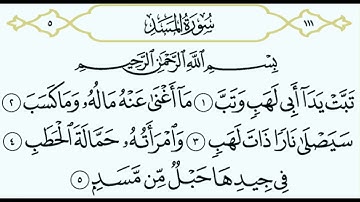 ١١١ سُورَةُ المَسَدِ ٥
بِسْمِ اللَّهِ الرَّحْمَٰنِ الرَّحِيمِ
تَبَّتْ يَدَآ أَبِى لَهَبٍ وَتَبَّ ١ مَآ أَغْنَىٰ عَنْهُ مَالُهُۥ وَمَا كَسَبَ ٢
سَيَصْلَىٰ نَارًا ذَاتَ لَهَبٍ ٣ وَٱمْرَأَتُهُۥ حَمَّالَةَ ٱلْحَطَبِ ٤
فِى جِيدِهَا حَبْلٌ مِّن مَّسَدٍۭ ٥